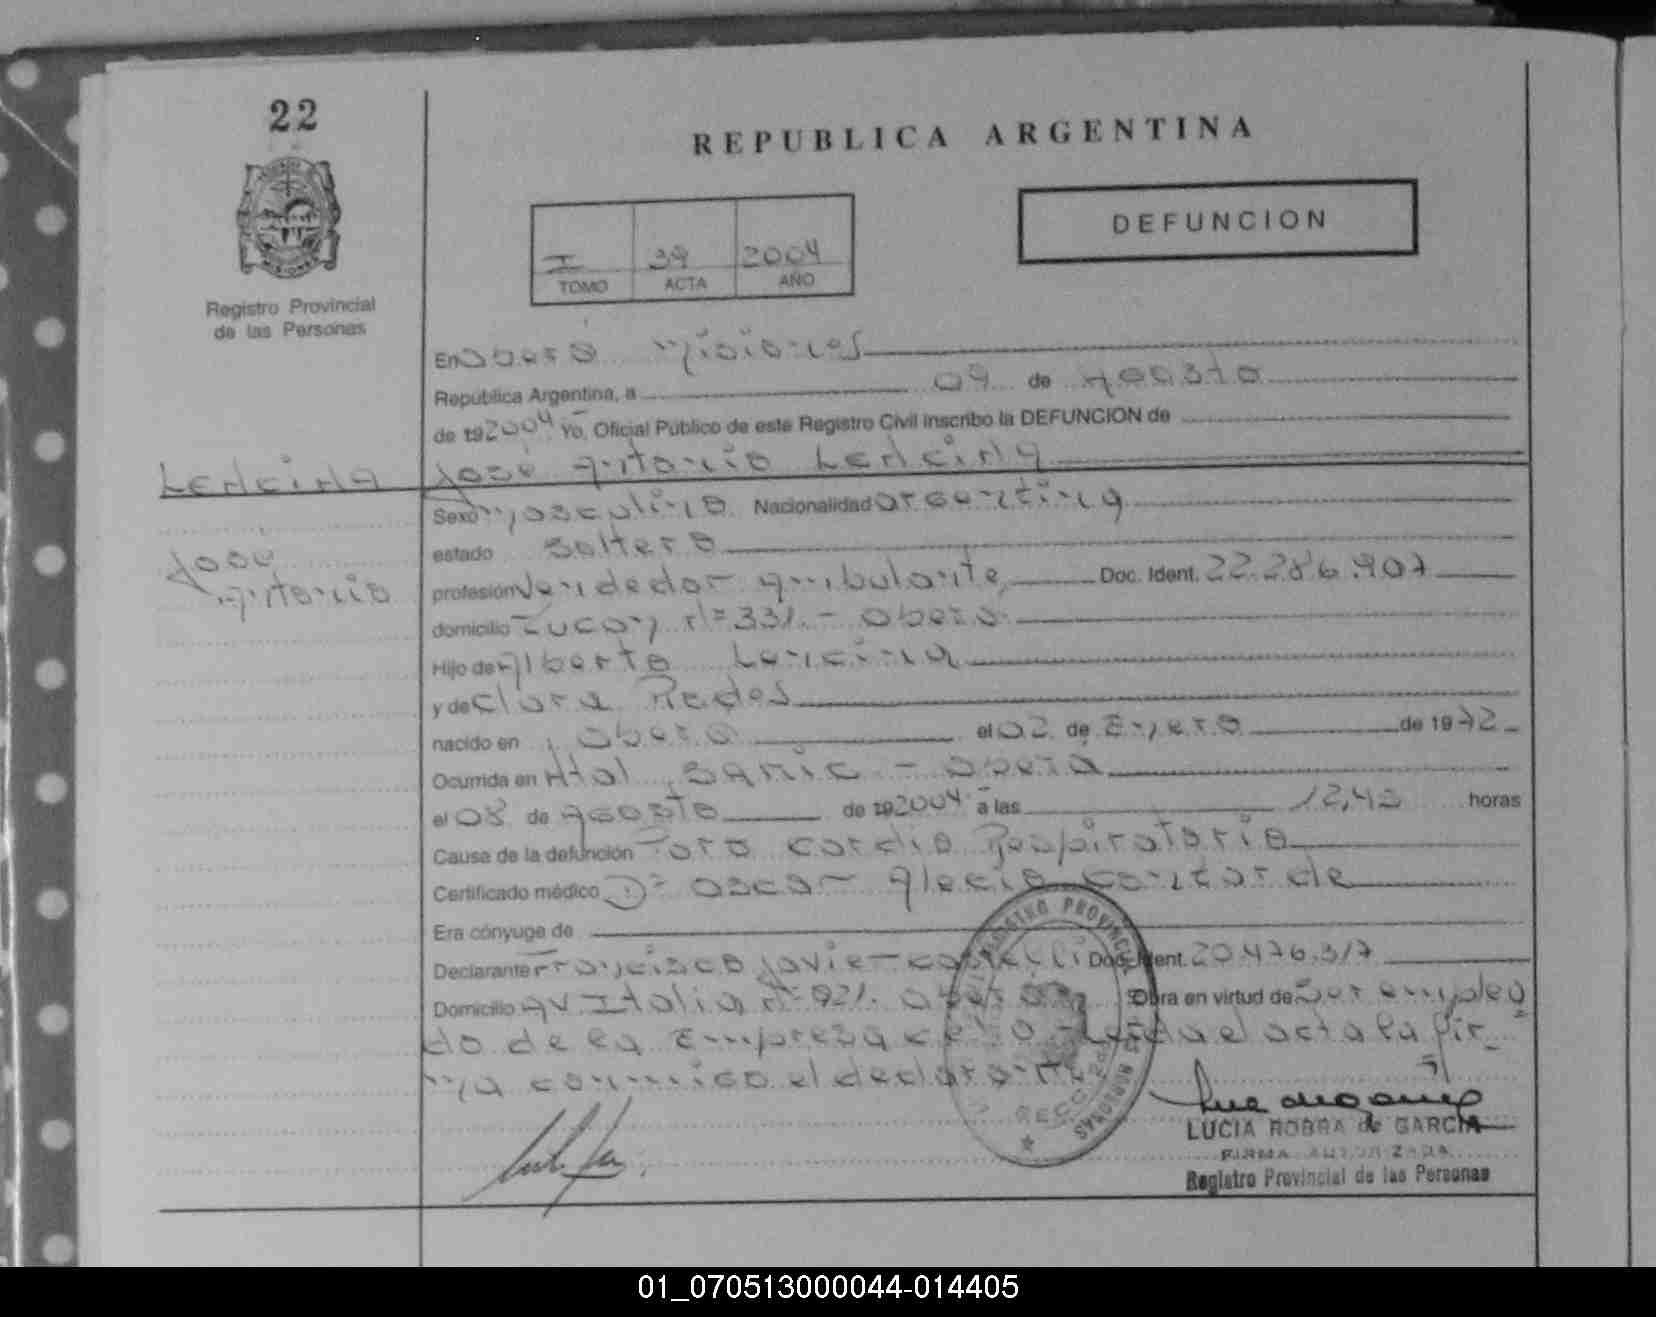 22
REPUBLICA ARGENTINA
DEFUNCION
I 39 2004
TOMO ACTA AÑO
Registro Provincial
de las Personas
En Oberá Misiones
República Argentina, a 09 de Agosto
de 19 2004 Yo, Oficial Público de este Registro Civil inscribo la DEFUNCION de
Lencina José Antonio Lencina
Sexo Masculino Nacionalidad argentina
José
Antonio
estado Soltero
profesión Vendedor ambulante Doc. Ident. 22.286.907
domicilio Tucan nº 331.- Oberá
Hijo de Alberto Lencina
y de Clara Redes
nacido en Oberá el 02 de Enero de 1972
Ocurrida en Htal. SAMIC - Oberá
el 08 de Agosto de 19 2004 a las 12,45 horas
Causa de la defunción Paro Cardio Respiratorio
Certificado médico Dº Oscar Alecio
Era cónyuge de
Declarante Francisco Javier Doc. Ident. 20.476.317
Domicilio Av Italia nº 921. Oberá Obra en virtud de Ser emplea
do de la Empresa Leída el acta la fir_
ma conmigo el declarante
LUCIA ROBRA de GARCIA
FIRMA AUTORIZADA
Registro Provincial de las Personas
01_070513000044-014405